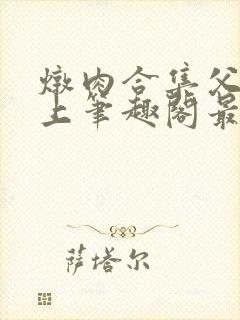 燉肉合集父
上笔趣阁最
萨塔尔